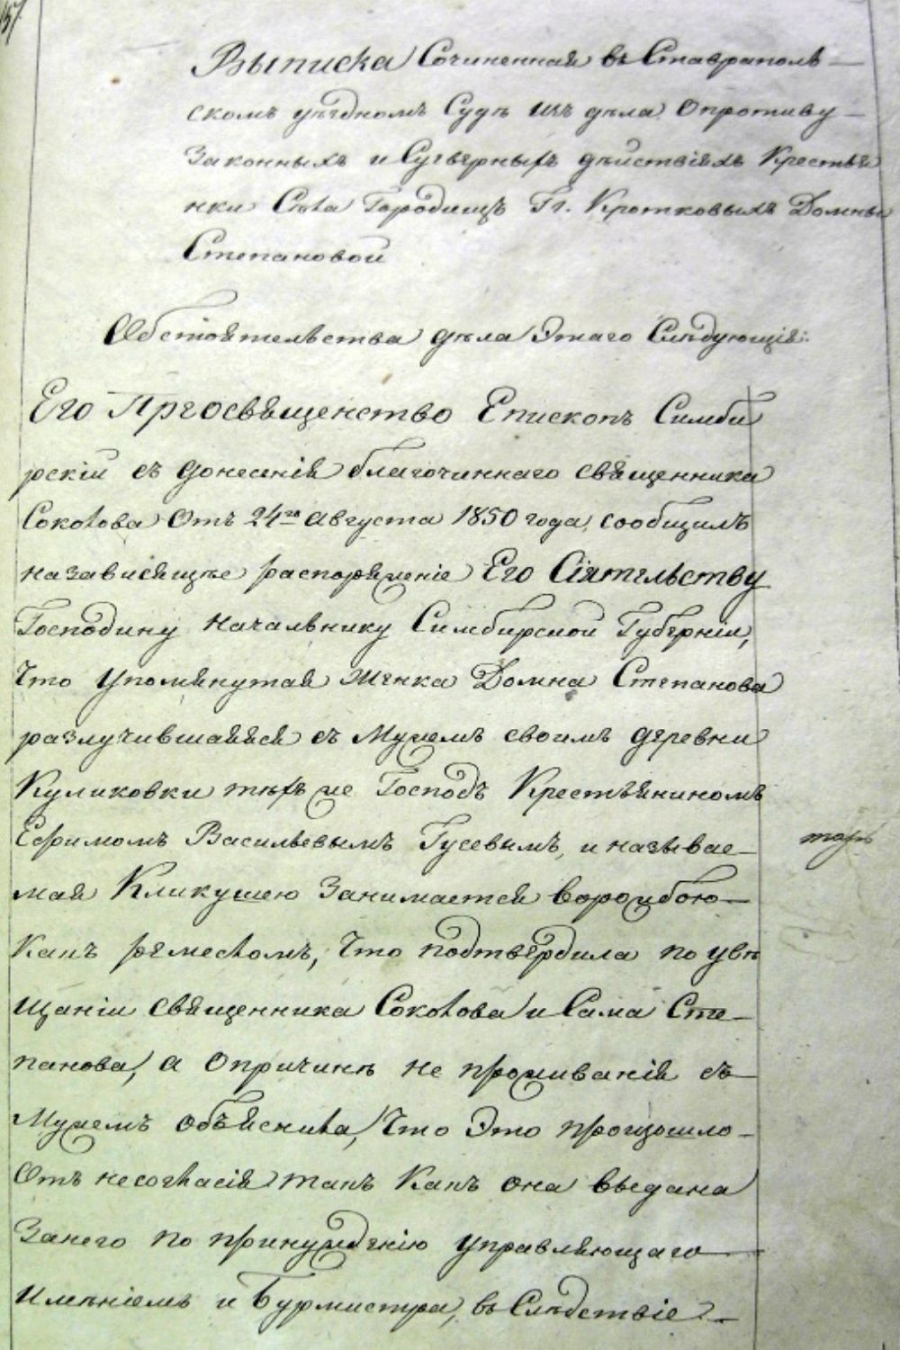 157
Выписка Сочиненная въ Ставраполь-
скомъ уѣздномъ Судѣ изъ дѣла Опротиву-
Законныхъ и Суевѣрныхъ дѣйствіяхъ Крестья
нки Села Городищъ Гг. Кротковыхъ Домны
Степановой
Обстоятельства дѣла Этаго Слѣдующія:
Его Преосвященство Епископъ Симби
рскій съ донесенія благочиннаго священника
Соколова Отъ 24го августа 1850 года, сообщилъ
назависящѣе распоряженіе Его Сіятельству
Господину Начальнику Симбирской Губерніи,
Что упомянутая Женка Домна Степанова
разлучившаяяся съ Мужемъ своимъ деревни
Куликовки тѣхъ же Господъ Крестьяниномъ
Ефимомъ Васильевымъ Гусевымъ, и называе-
мая Кликушею Занимается ворожбою-
Какъ ремесломъ, Что подтвердила по увѣ
щаніи священника Соколова и Сама Сте-
панова, а Опричинѣ не проживанія съ
Мужемъ объяснила, Что Это произошло-
Отъ несогласія такъ Какъ она выдана
Занего по принужденію управляющаго
имѣніемъ и Бурмистра, въ Слѣдствіе-